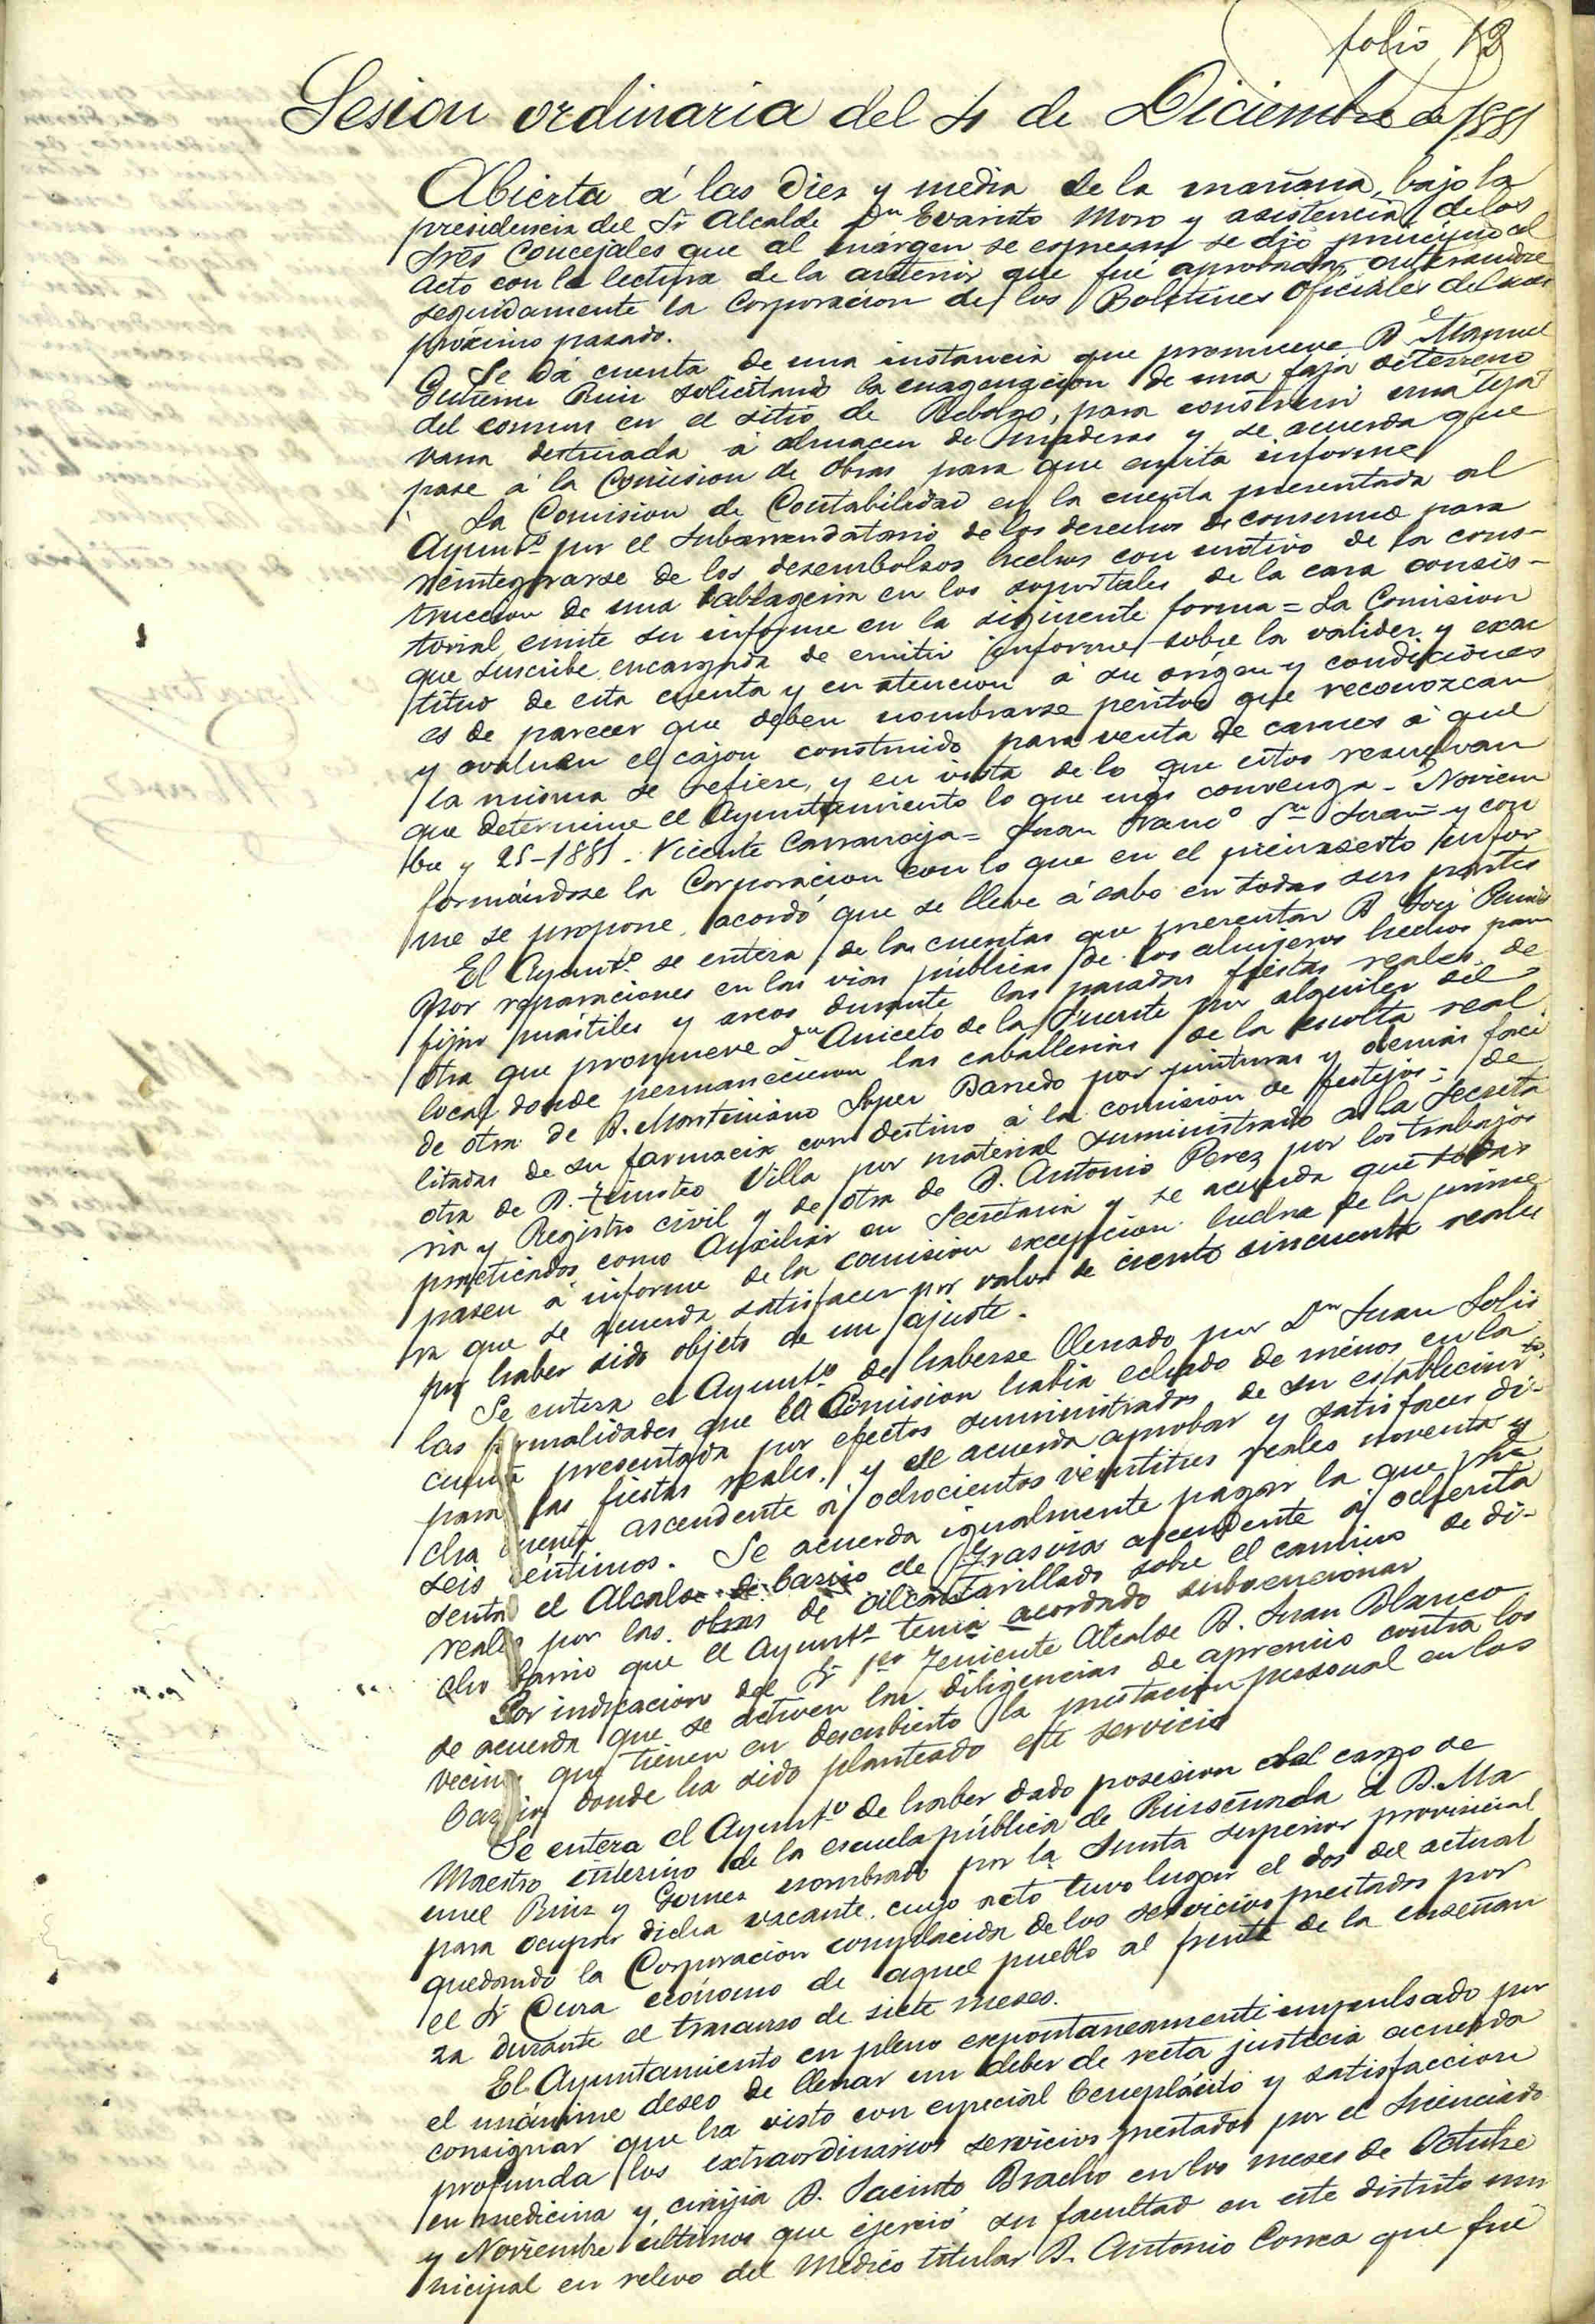 folio 12
Sesion ordinaria del 4 de Diciembre de 1881
Abierta á las diez y media de la mañana, bajo la
presidencia del Sr Alcalde Dn Evaristo Moro y asistencia de los
Sres Concejales que al márgen se espresan se dió principio al
acto con la lectura de la anterior que fué aprobada, enterandose
seguidamente la Corporacion de los Boletines Oficiales del mes
próximo pasado.
Se dá cuenta de una instancia que promueve D. Manuel
Gutierrez Ruiz solicitando la enagenacion de una faja de terreno
del comun en el sitio de Rebozo, para construir una teja
vana destinada á almacen de maderas y se acuerda que
pase á la Comision de Obras para que emita informe
La Comision de Contabilidad en la cuenta presentada al
Ayunto por el Subarrendatario de los derechos de consumo para
reintegrarse de los desembolsos hechos con motivo de la cons-
truccion de una tablageria en los soportales de la casa consis-
torial, emite su informe en la siguiente forma = La Comision
que suscribe encargada de emitir informe sobre la validez y exac
titud de esta cuenta y en atencion á su orígen y condiciones
es de parecer que deben nombrarse peritos que reconozcan
y evaluen el cajon construido para venta de carnes á que
la misma se refiere, y en vista de lo que estos resuelvan
que determine el Ayuntamiento lo que más convenga - Noviem
bre y 25-1881. Vicente Carranceja = Juan Franco Sn Juan = y con
formándose la Corporacion con lo que en el preinserto infor
me se propone, acordó que se lleve á cabo en todas sus partes
El Ayunto se entera de las cuentas que presentan D. José
por reparaciones en las vias públicas de los abujeros hechos para
fijar mástiles y arcos durante las pasadas fiestas reales, de
otra que promueve Dn Aniceto de la Fuente por alquiler del
local donde permanecieron las caballerias de la escolta real
de otra de D. Montiniano Lopez Barredo por pinturas y demás faci
litadas de su farmacia con destino á la comision de festejos; de
otra de D. Timoteo Villa por material suministrado a la Secreta
ria y Registro civil y de otra de D. Antonio Perez por los trabajos
practicados como Auxiliar en Secretaria y se acuerda que todas
pasen á informe de la comision excepcion hecha de la prime
ra que se acuerda satisfacer por valor de ciento cincuenta reales
por haber sido objeto de un ajuste.
Se entera el Ayunto de haberse llenado por Dn Juan Solis
las formalidades que la Comision habia echado de ménos en la
cuenta presentada por efectos suministrados de su establecimto
para las fiestas reales, y se acuerda aprobar y satisfacer di-
cha cuenta ascendente á ochocientos veintitres reales noventa y
seis céntimos. Se acuerda igualmente pagar la que pre
senta el Alcalde de barrio de Frasvia ascendente á ochenta
reales por las obras de alcantarillado sobre el camino de di-
cho barrio que el Ayunto tenia acordado subvencionar
Por indicacion del Sr 1er Teniente Alcalde D. Juan Blanco
se acuerda que se activen las diligencias de apremio contra los
vecinos que tienen en descubierto la prestacion personal en los
barrios donde ha sido planteado este servicio
Se entera el Ayunto de haber dado posesion del cargo de
Maestro interino de la escuela pública de Ruiseñada á D. Ma
nuel Ruiz y Gomez nombrado por la Junta superior provincial
para ocupar dicha vacante, cuyo acto tuvo lugar el dos del actual
quedando la Corporacion complacida de los servicios prestados por
el Sr Cura ecónomo de aquel pueblo al frente de la enseñan
za durante el trascurso de siete meses.
El Ayuntamiento en pleno expontaneamente impulsado por
el unánime deseo de llenar un deber de recta justicia acuerda
consignar que ha visto con especial beneplácito y satisfaccion
profunda los extraordinarios servicios prestados por el Licenciado
en medicina y cirujia D. Jacinto Bracho en los meses de Octubre
y Noviembre últimos que ejerció su facultad en este distrito mu
nicipal en relevo del Medico titular D. Antonio Correa que fué